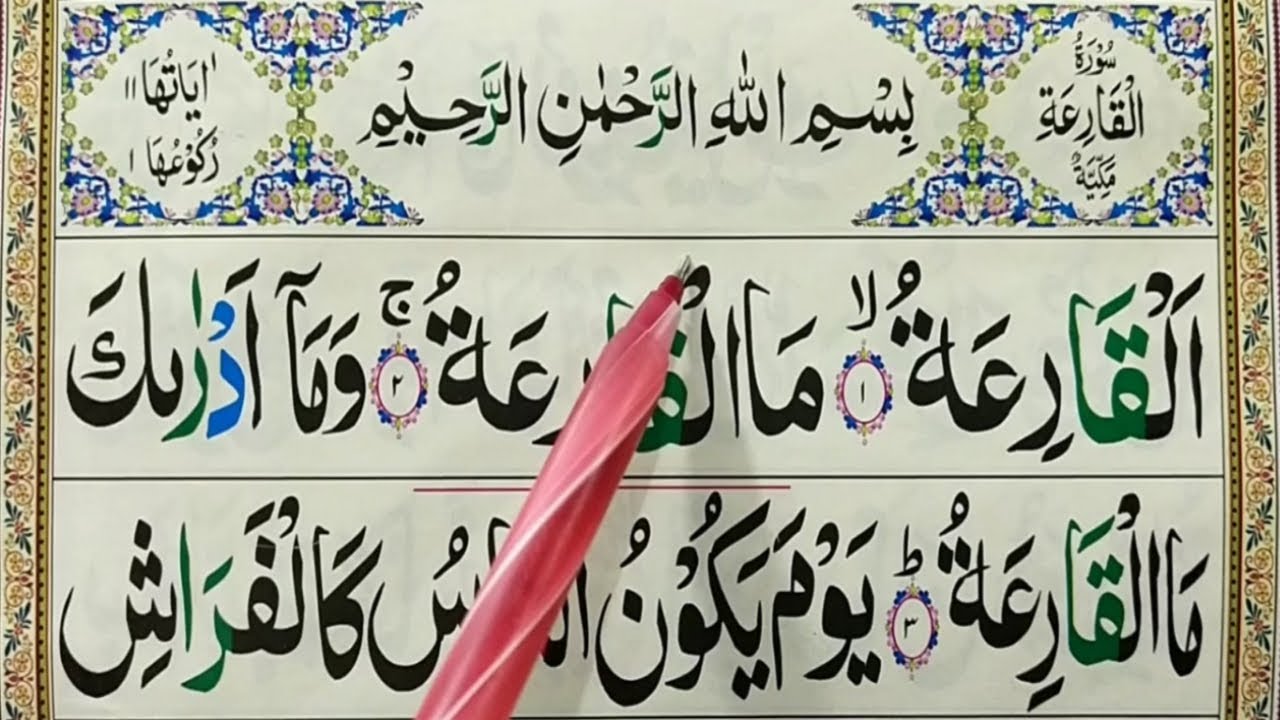 سُوْرَةُ
الْقَارِعَةِ
مَكِّيَّةٌ
بِسْمِ اللهِ الرَّحْمٰنِ الرَّحِيْمِ
اٰيَاتُهَا ١١
رُكُوْعُهَا ١
اَلْقَارِعَةُ ۙ ١ مَا الْقَارِعَةُ ۚ ٢ وَمَآ اَدْرٰىكَ
مَا الْقَارِعَةُ ؕ ٣ يَوْمَ يَكُوْنُ النَّاسُ كَالْفَرَاشِ